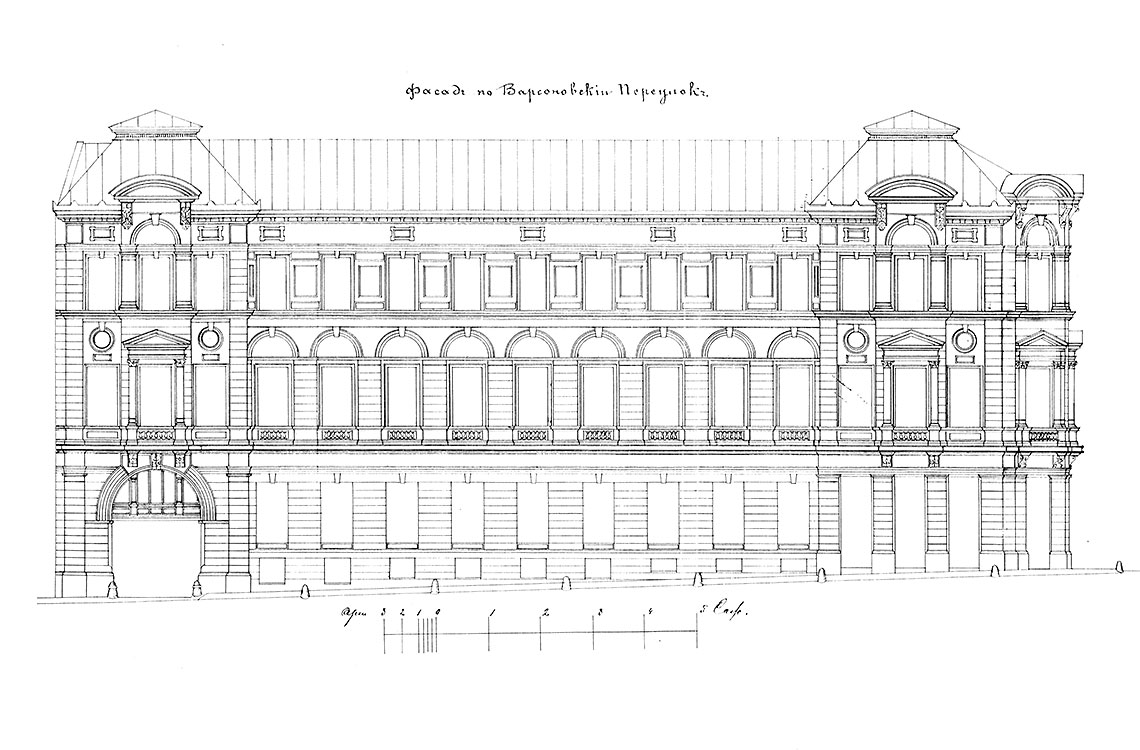 Фасадъ по Варсоновскiй Переулокъ.
Арш 3 2 1 0 1 2 3 4 5 Саж.